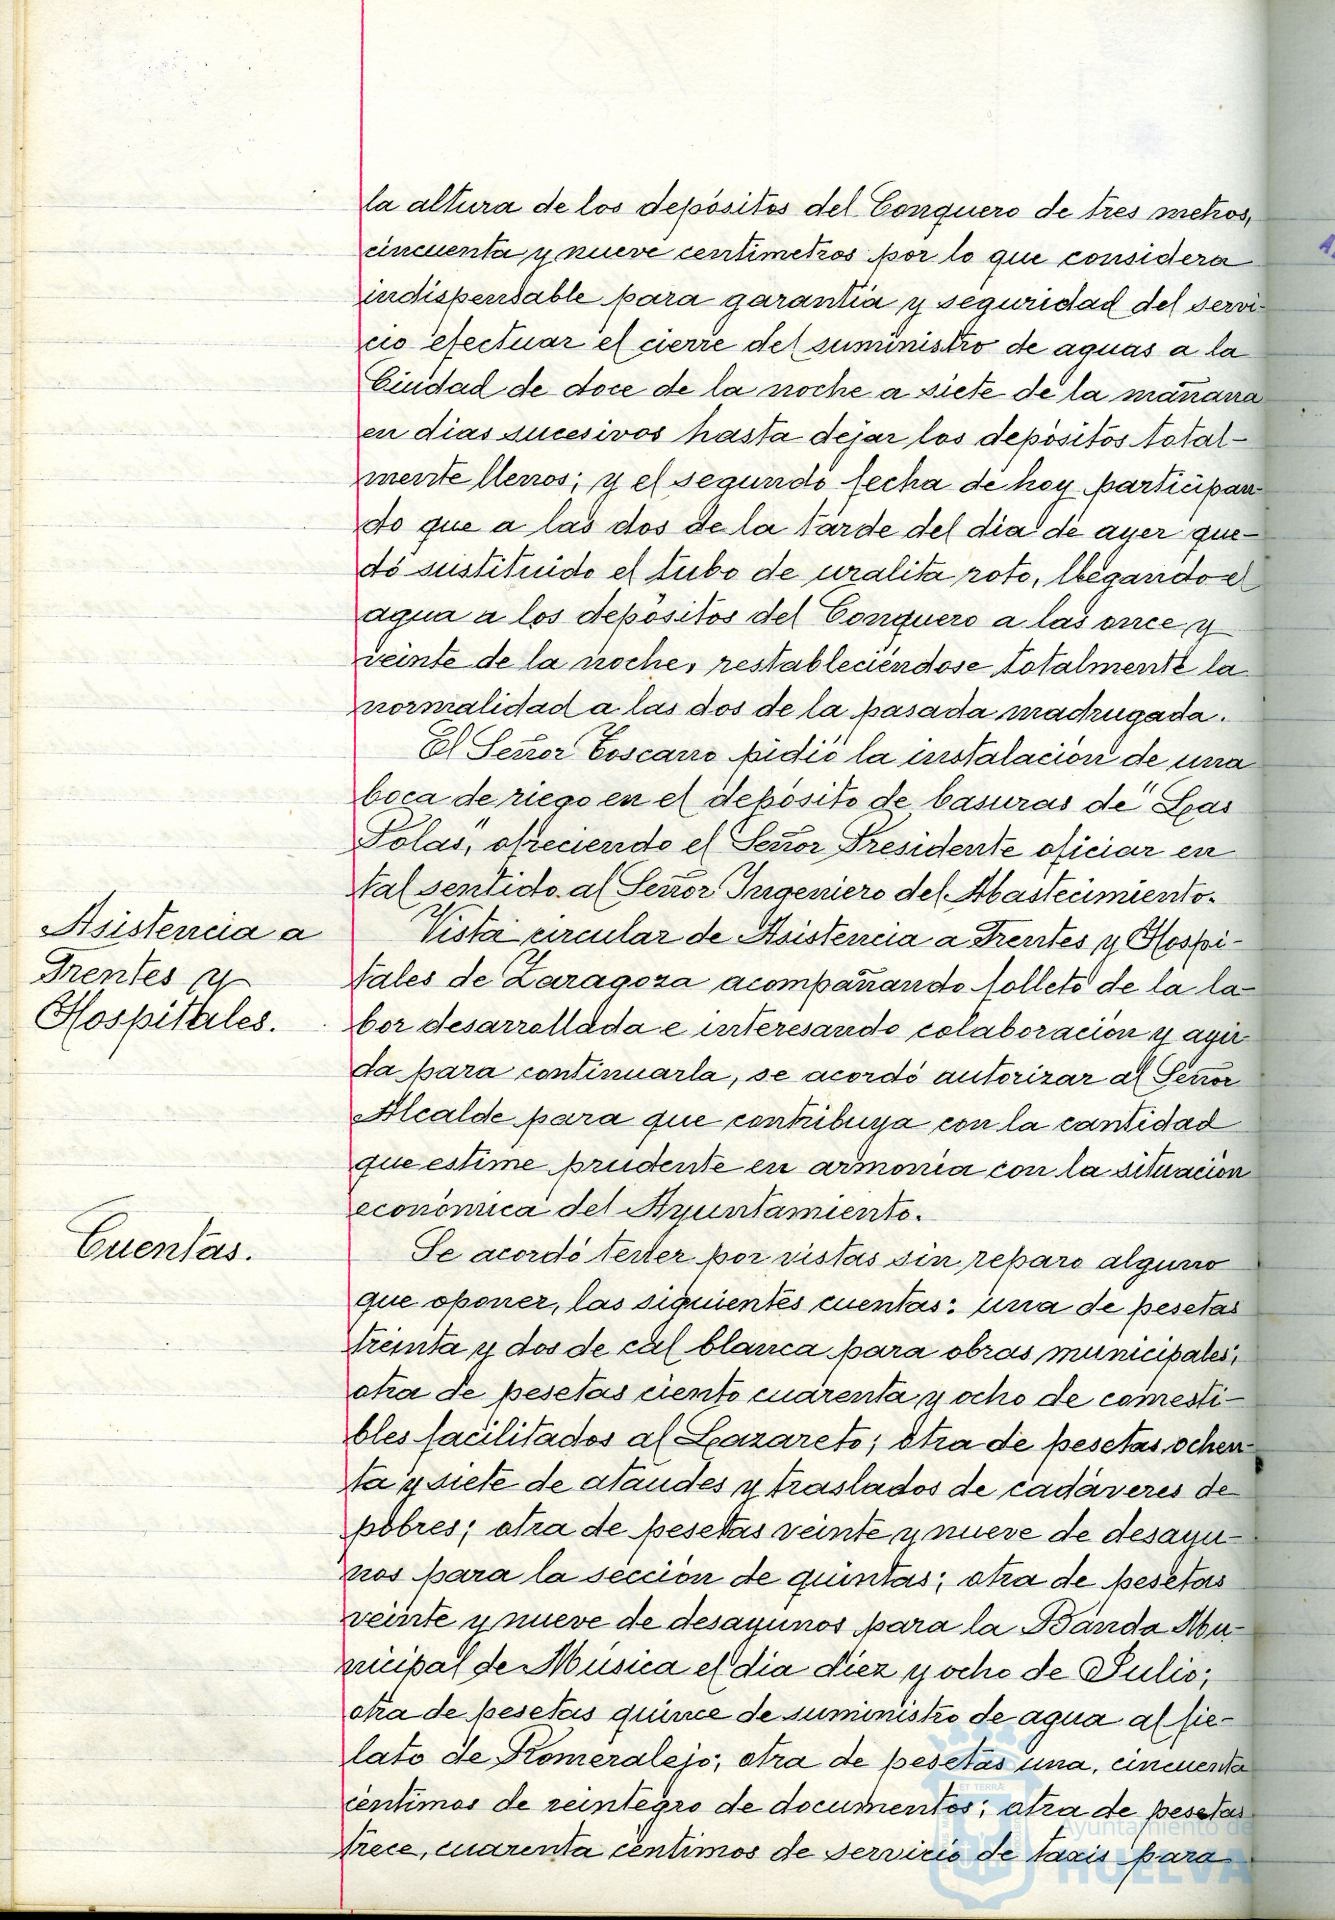 la altura de los depósitos del Conquero de tres metros,
cincuenta y nueve centimetros por lo que considera
indispensable para garantía y seguridad del servi-
cio efectuar el cierre del suministro de aguas a la
Ciudad de doce de la noche a siete de la mañana
en dias sucesivos hasta dejar los depósitos total-
mente llenos; y el segundo fecha de hoy participan-
do que a las dos de la tarde del dia de ayer que-
dó sustituido el tubo de uralita roto, llegando el
agua a los depósitos del Conquero a las once y
veinte de la noche, restableciéndose totalmente la
normalidad a las dos de la pasada madrugada.
El Señor Toscano pidió la instalación de una
boca de riego en el depósito de basuras de "Las
Polas", ofreciendo el Señor Presidente oficiar en
tal sentido al Señor Ingeniero del Abastecimiento.
Asistencia a
Frentes y
Hospitales.
Vista circular de Asistencia a Frentes y Hospi-
tales de Zaragoza acompañando folleto de la la-
bor desarrollada e interesando colaboración y ayu
da para continuarla, se acordó autorizar al Señor
Alcalde para que contribuya con la cantidad
que estime prudente en armonía con la situación
económica del Ayuntamiento.
Cuentas.
Se acordó tener por vistas sin reparo alguno
que oponer, las siguientes cuentas: una de pesetas
treinta y dos de cal blanca para obras municipales;
otra de pesetas ciento cuarenta y ocho de comesti-
bles facilitados al Lazareto; otra de pesetas ochen-
ta y siete de ataudes y traslados de cadáveres de
pobres; otra de pesetas veinte y nueve de desayu-
nos para la sección de quintas; otra de pesetas
veinte y nueve de desayunos para la Banda Mu-
nicipal de Música el dia diez y ocho de Julio;
otra de pesetas quince de suministro de agua al fie-
lato de Romeralejo; otra de pesetas una, cincuenta
céntimos de reintegro de documentos; otra de pesetas
trece, cuarenta céntimos de servicio de taxis para
Ayuntamiento de
HUELVA